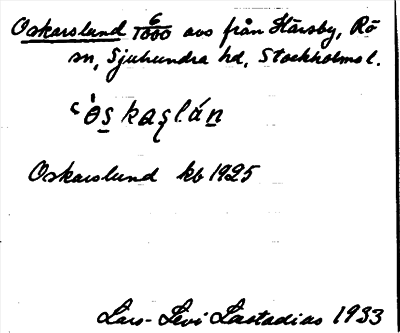 Oskarslund 6/1000 avs från Härsby, Rö
sn, Sjuhundra hd, Stockholms l.
ˋo̱s̱kaşláṉ
Oskarslund kb 1925
Lars-Levi Læstadius 1933